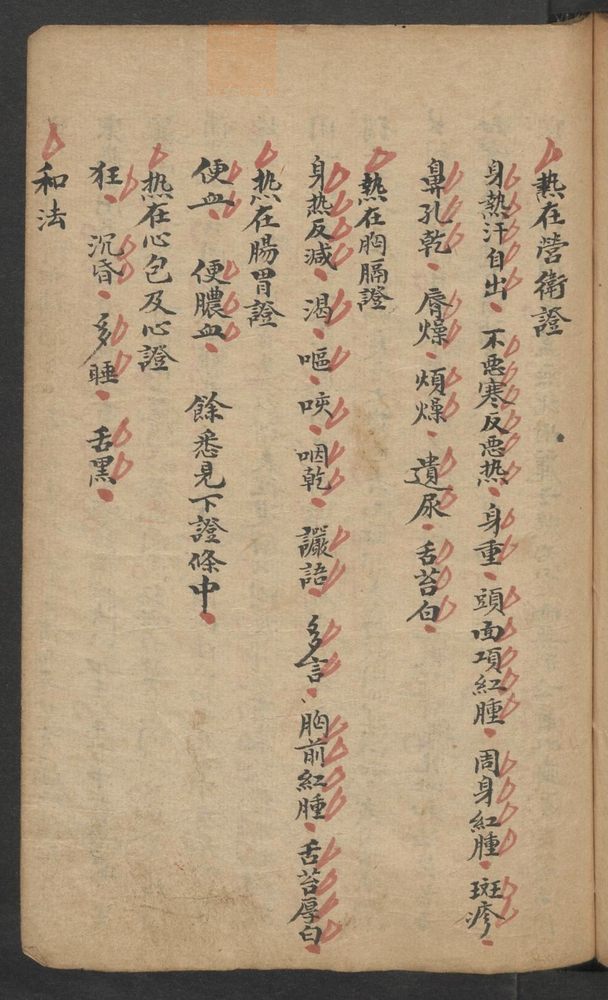 熱在營衛證
身熱汗自出 不惡寒反惡热 身重 頭面項紅腫 周身紅腫 斑疹
鼻孔乾 唇燥 煩燥 遺尿 舌苔白
熱在胸膈證
身热反減 渴 嘔 咳 咽乾 讝語 多言 胸前紅腫 舌苔厚白
热在腸胃證
便血 便膿血 餘悉見下證條中
热在心包及心證
狂 沉昏 多睡 舌黑
和法